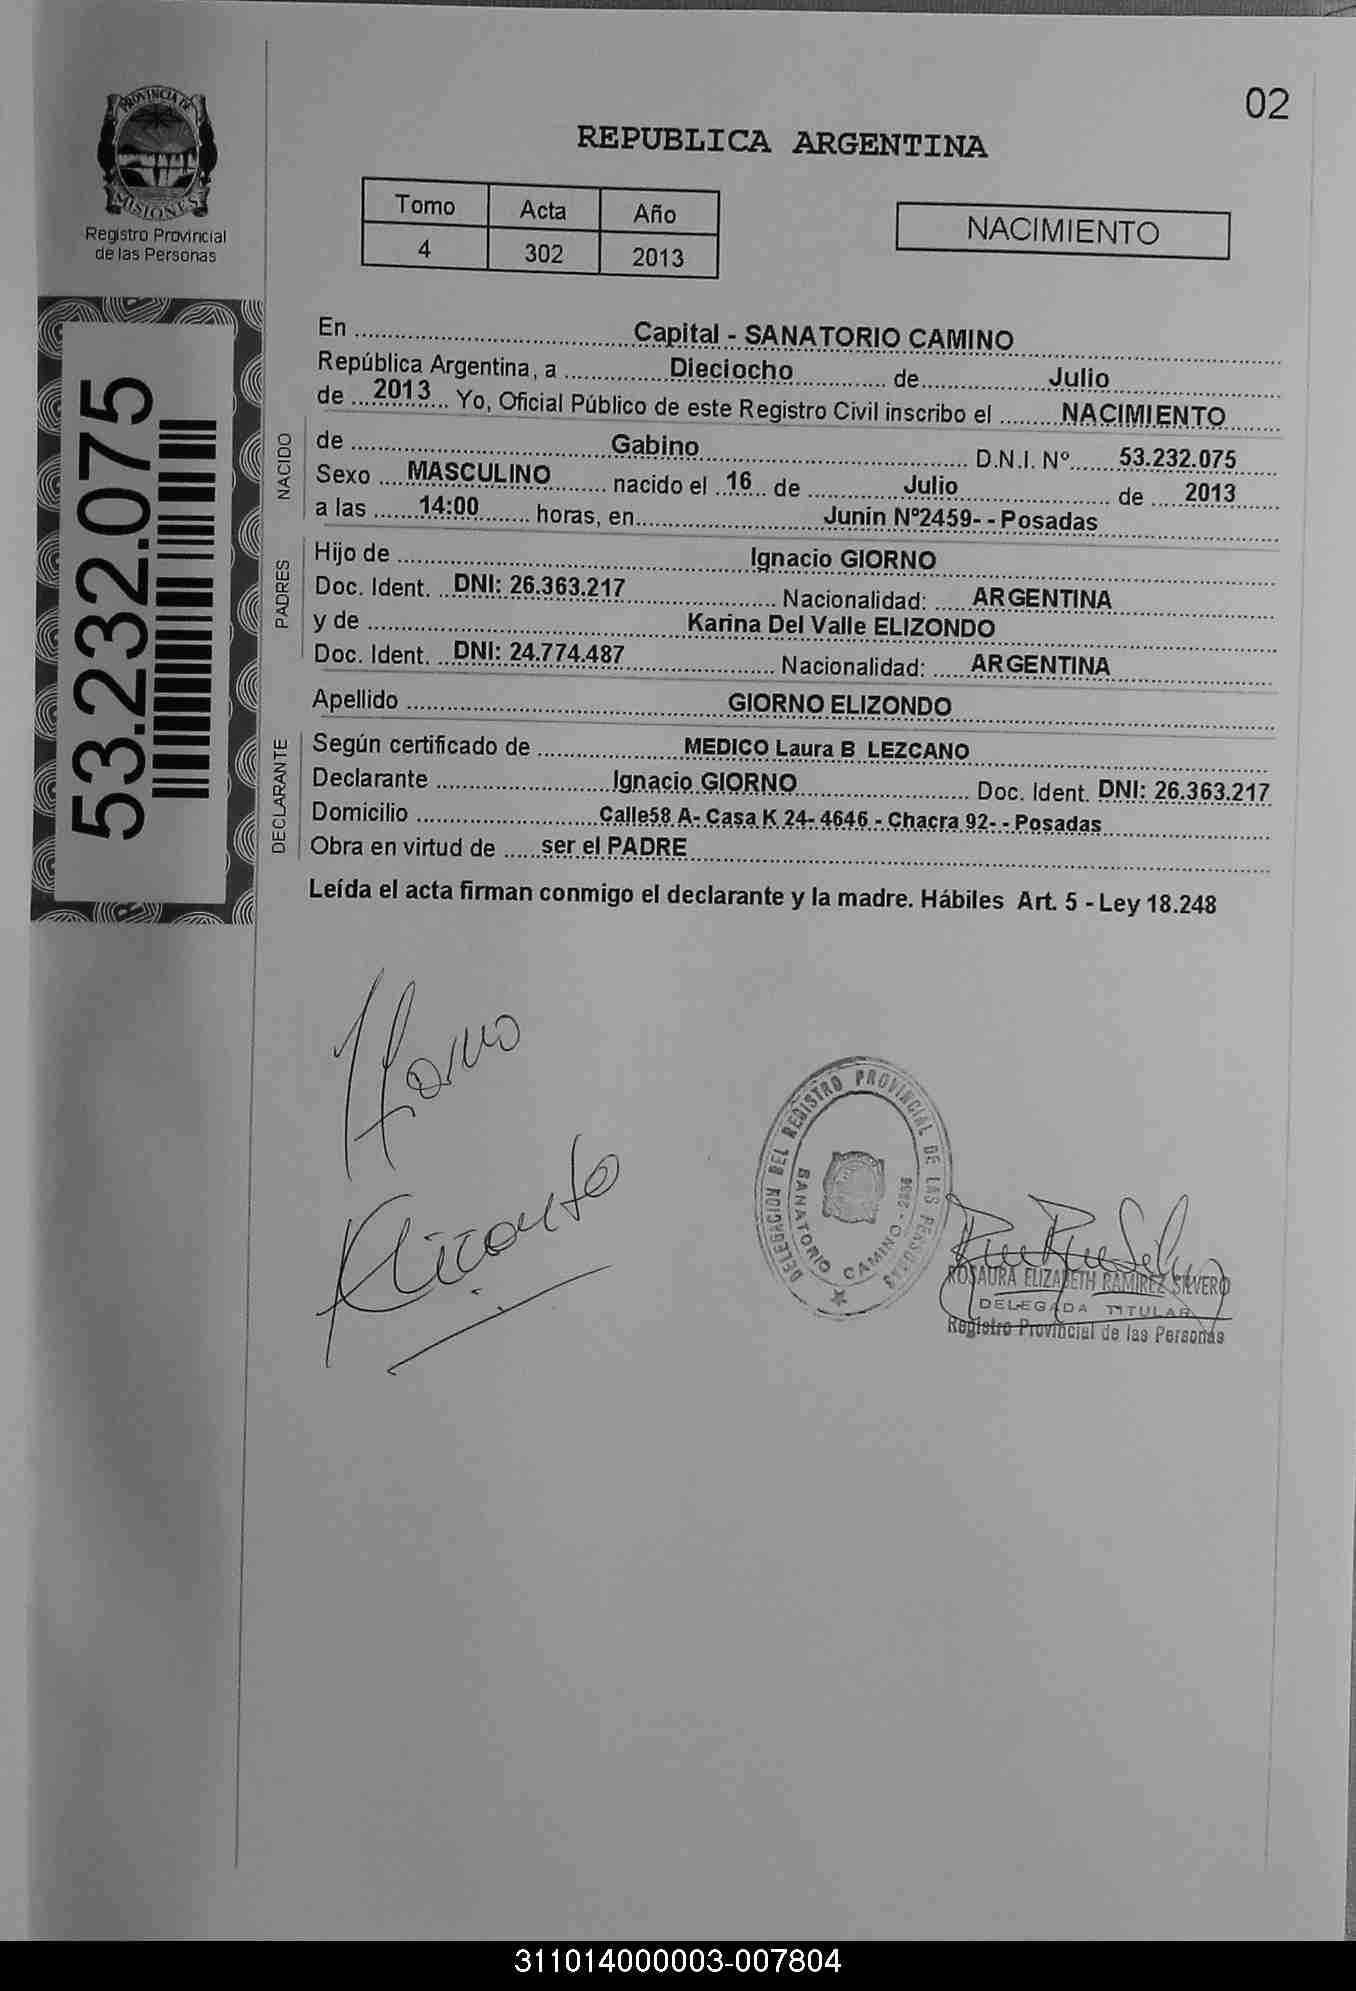 02
PROVINCIA DE
MISIONES
Registro Provincial
de las Personas
REPUBLICA ARGENTINA
Tomo Acta Año
4 302 2013
NACIMIENTO
53.232.075
En Capital - SANATORIO CAMINO
República Argentina, a Dieciocho de Julio
de 2013 Yo, Oficial Público de este Registro Civil inscribo el NACIMIENTO
NACIDO
de Gabino D.N.I. Nº 53.232.075
Sexo MASCULINO nacido el 16 de Julio de 2013
a las 14:00 horas, en Junin Nº2459- - Posadas
PADRES
Hijo de Ignacio GIORNO
Doc. Ident. DNI: 26.363.217 Nacionalidad: ARGENTINA
y de Karina Del Valle ELIZONDO
Doc. Ident. DNI: 24.774.487 Nacionalidad: ARGENTINA
Apellido GIORNO ELIZONDO
DECLARANTE
Según certificado de MEDICO Laura B LEZCANO
Declarante Ignacio GIORNO Doc. Ident. DNI: 26.363.217
Domicilio Calle58 A- Casa K 24- 4646 - Chacra 92- - Posadas
Obra en virtud de ser el PADRE
Leída el acta firman conmigo el declarante y la madre. Hábiles Art. 5 - Ley 18.248
DELEGACION DEL REGISTRO PROVINCIAL DE LAS PERSONAS
SANATORIO CAMINO -
ROSAURA ELIZABETH RAMIREZ SILVERO
DELEGADA TITULAR
Registro Provincial de las Personas
311014000003-007804